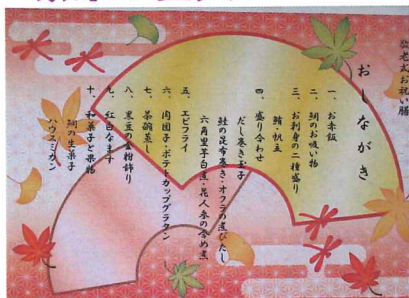 敬老式お祝い膳
おしながき
一、お赤飯
二、鯛のお吸い物
三、お刺身の二種盛り
鮪・帆立
四、盛り合わせ
だし巻き玉子
鮭の昆布巻き・オクラの煮びたし
六角里芋白煮・花人参の含め煮
五、エビフライ
六、肉団子・ポテトカップグラタン
七、茶碗蒸し
八、黒豆の金粉飾り
九、紅白なます
十、和菓子と果物
鯛の生菓子
ハウスミカン